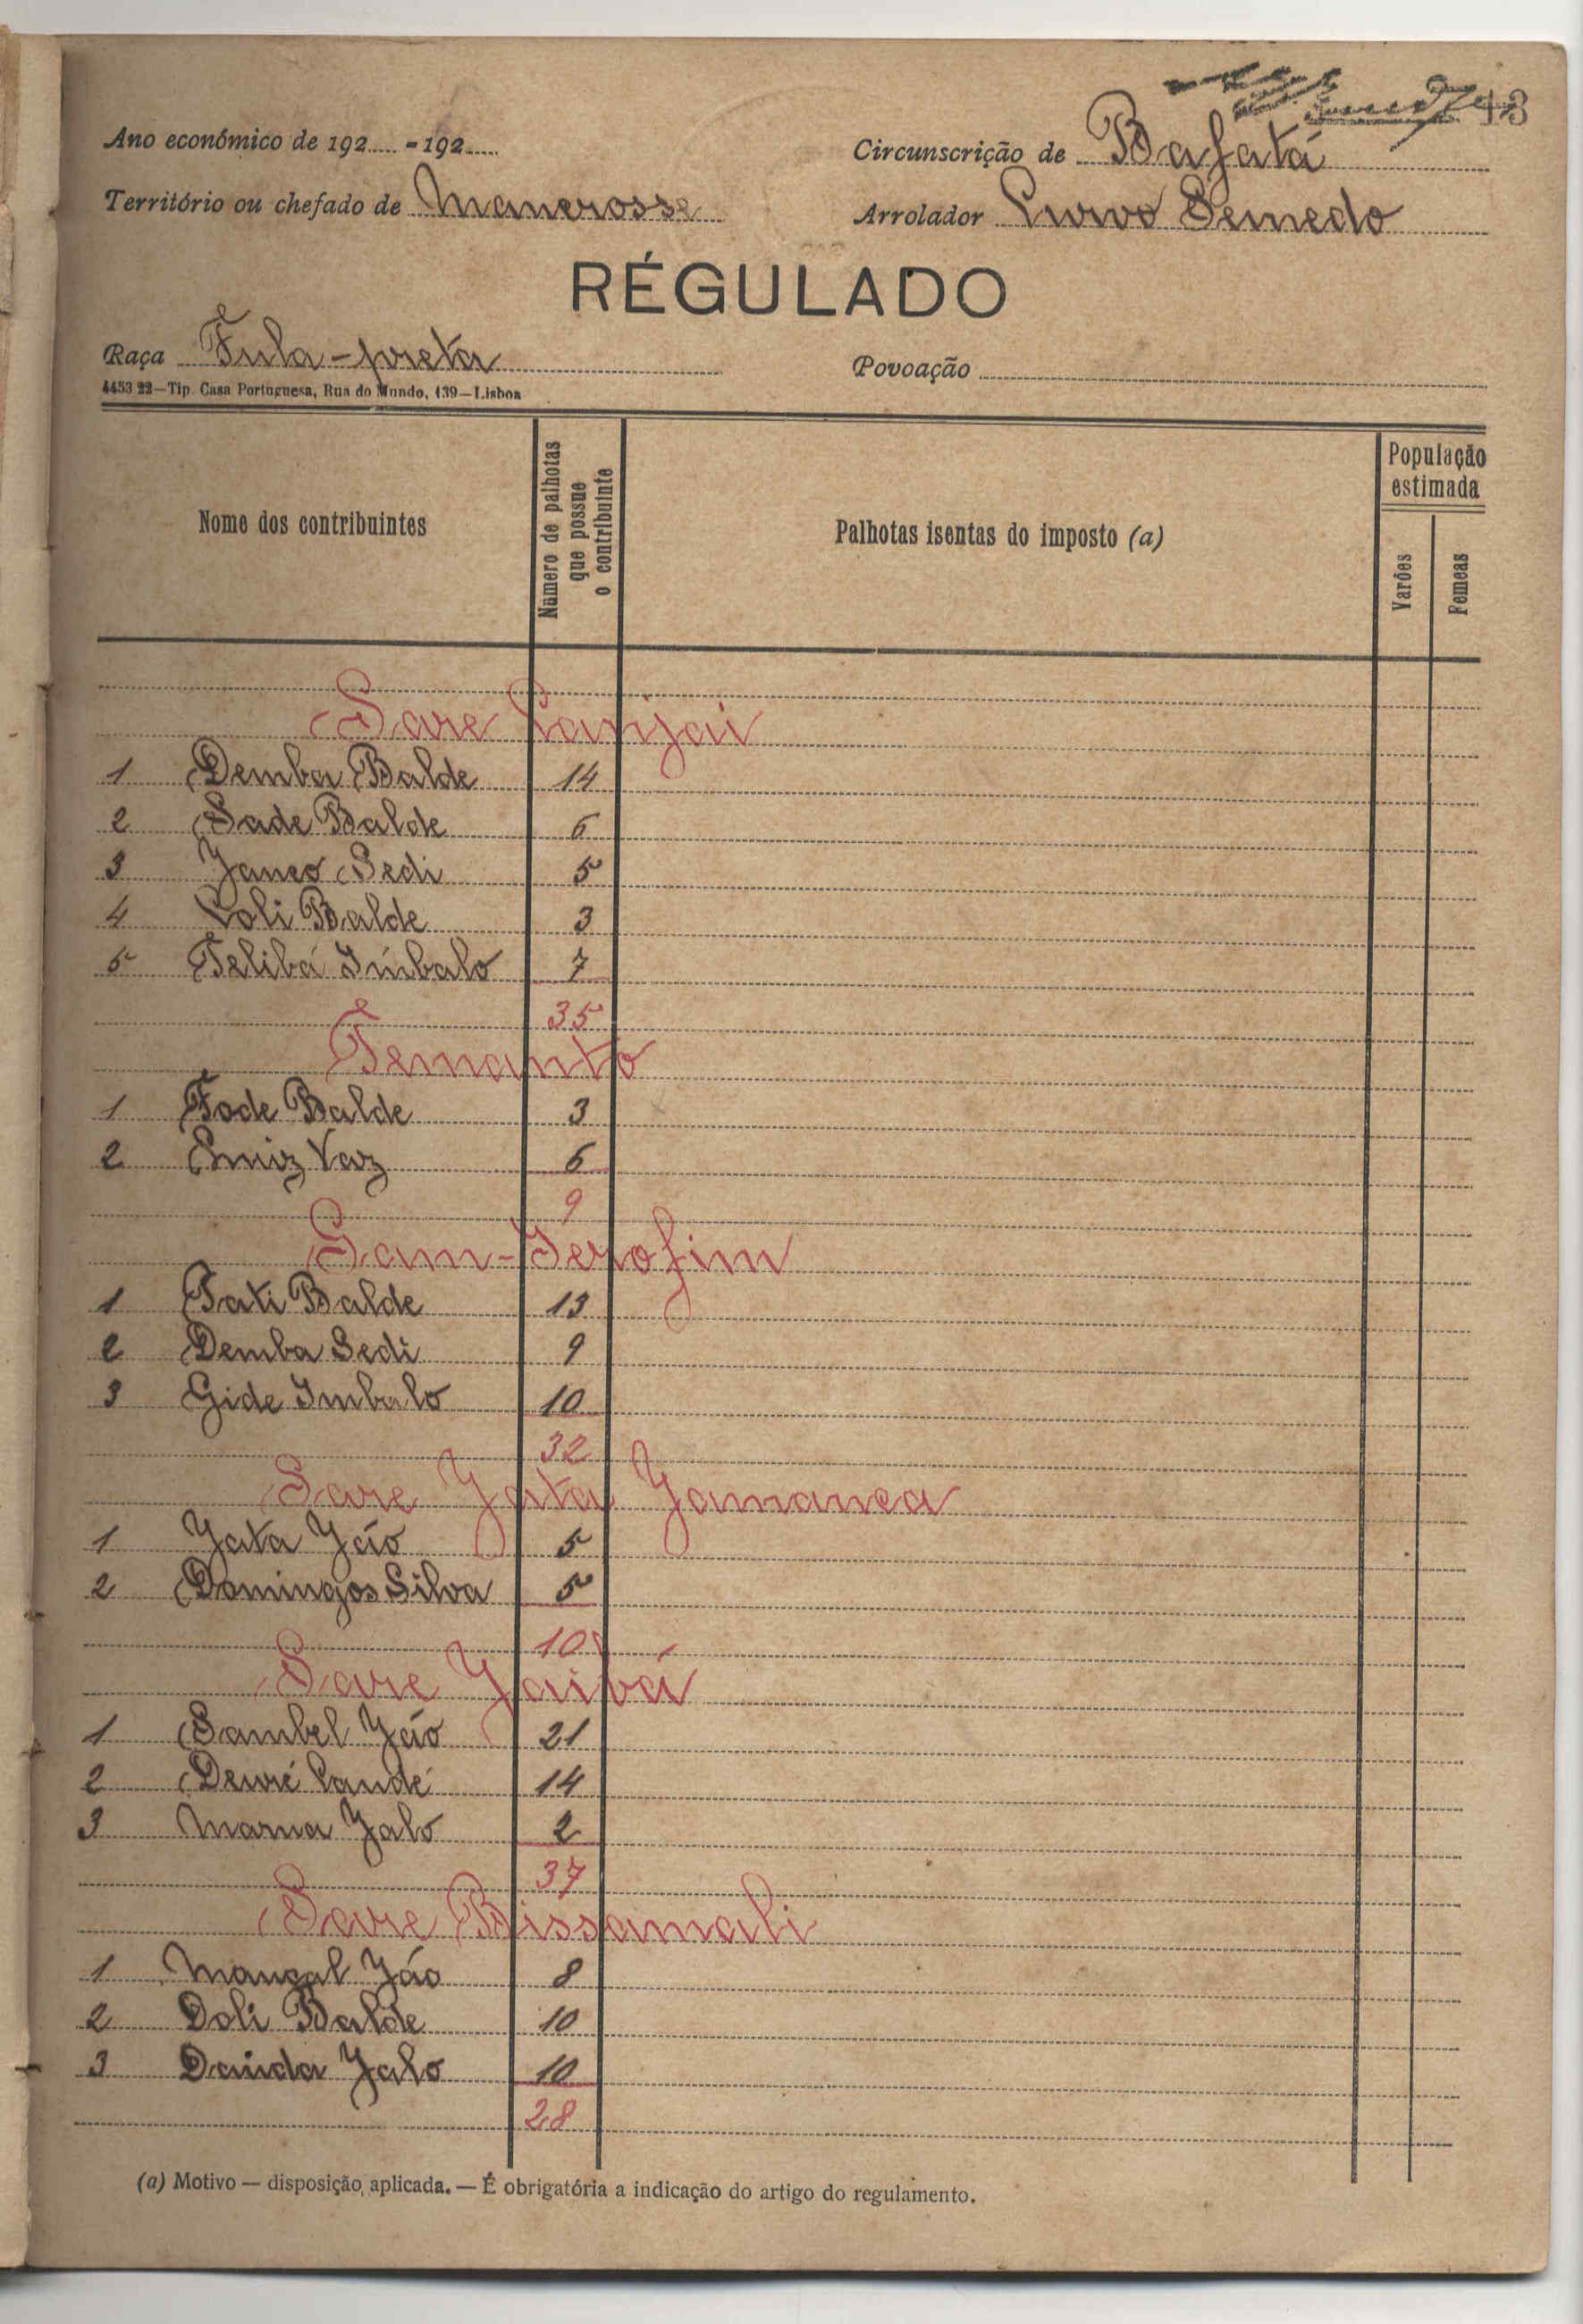 43
Ano económico de 192.... - 192....
Circunscrição de Bafatá
Território ou chefado de Manerosse
Arrolador Semedo
RÉGULADO
Raça Fula-preta
Povoação
4453 22—Tip. Casa Portuguesa, Rua do Mundo, 139—Lisboa
Nome dos contribuintes
Número de palhotas que possue o contribuinte
Palhotas isentas do imposto (a)
População estimada
Varões
Femeas
Sare Canjai
1 Demba Balde 14
2 Sade Balde 6
3 Janco Sedi 5
4 Coli Balde 3
5 Telibá Imbalo 7
35
Temanto
1 Fode Balde 3
2 Vaz 6
9
Sam-Jerofim
1 Pati Balde 13
2 Demba Sedi 9
3 Gide Imbalo 10
32
Sare Jata Jamanca
1 Jata Jáo 5
2 Domingos Silva 5
10
Sare Jaibá
1 Sambel Jáo 21
2 Demé Candé 14
3 Mama Jalo 2
37
Sare Bissamali
1 Mançal Jáo 8
2 Doli Balde 10
3 Dauda Jalo 10
28
(a) Motivo — disposição aplicada. — É obrigatória a indicação do artigo do regulamento.